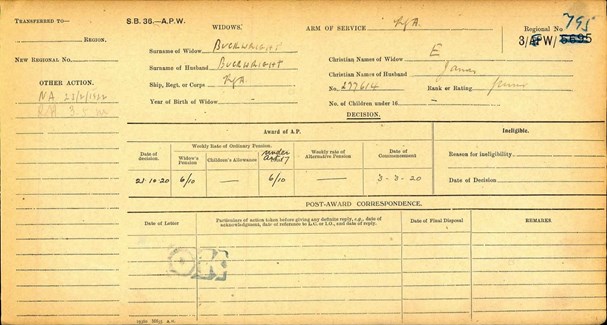 TRANSFERRED TO—
S.B. 36.—A.P.W.
WIDOWS.
ARM OF SERVICE
R.F.A.
Regional No. 795
REGION.
3/APW/5695
NEW REGIONAL No.
Surname of Widow Buckwright
Christian Names of Widow E
Surname of Husband Buckwright
Christian Names of Husband James
OTHER ACTION.
Ship, Regt. or Corps R.F.A.
No. 277614
Rank or Rating
NA 23/2/1922
Year of Birth of Widow
No. of Children under 16 —
DECISION.
Award of A.P.
Ineligible.
Date of decision.
Weekly Rate of Ordinary Pension.
Widow's Pension
Children's Allowance
under Art 17
Weekly rate of Alternative Pension
Date of Commencement
Reason for ineligibility
23.10.20
6/10
—
6/10
—
3-3-20
Date of Decision
POST-AWARD CORRESPONDENCE.
Date of Letter
Particulars of action taken before giving any definite reply, e.g., date of acknowledgment, date of reference to L.C. or I.O., and date of reply.
Date of Final Disposal
REMARKS.
OK